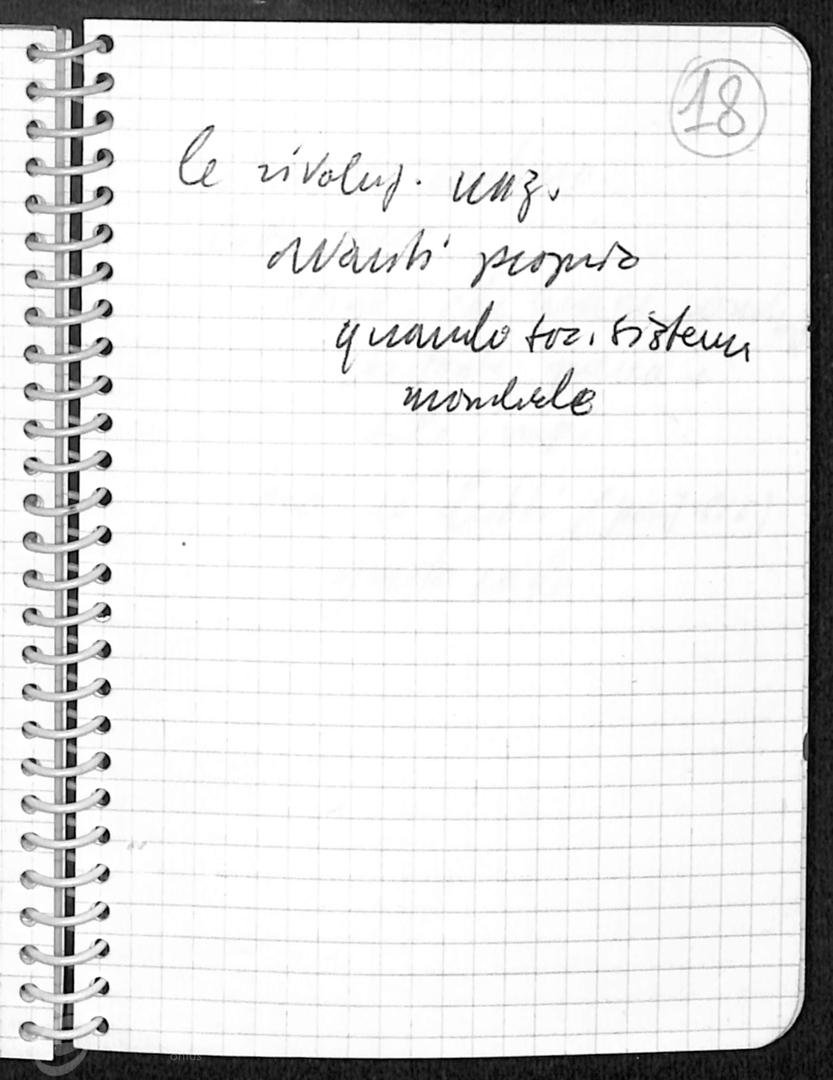 18
le rivoluz. naz.
avanti proprio
quando soc. sistema
mondiale
onlus